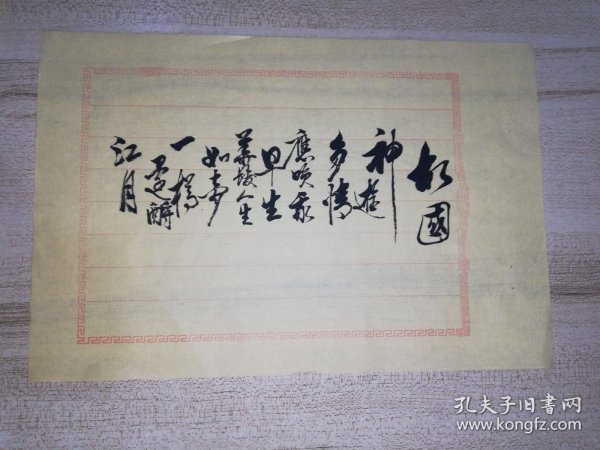 故國
神遊
多情
應笑我
早生
華髮人生
如夢
一樽
還酹
江月
孔夫子旧书网
www.kongfz.com